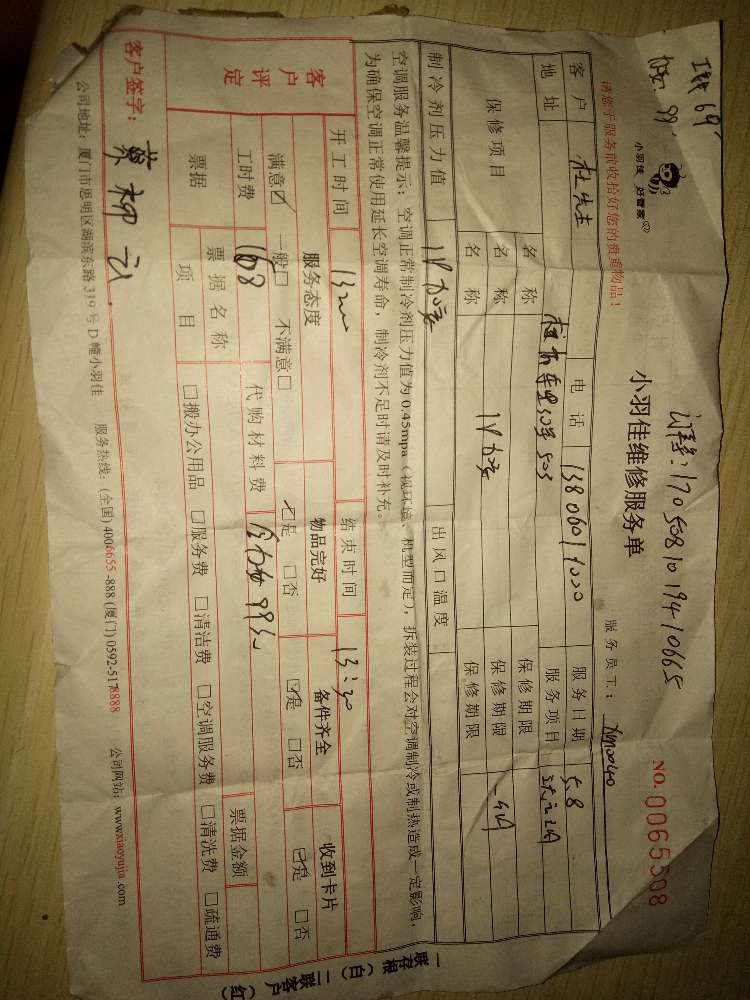 工钱69
小羽佳 好管家
请您于服务前收拾好您的贵重物品！
1705081019410665
小羽佳维修服务单
服务员工：
NO. 0065508
客户 杜先生 电话 服务日期 5.8
地址 503 服务项目
保修项目 名称 保修期限
名称 保修期限
名称 保修期限
制冷剂压力值 出风口温度
空调服务温馨提示：空调正常制冷剂压力值为0.45mpa（视环境、机型而定），拆装过程会对空调制冷或制热造成一定影响，
为确保空调正常使用延长空调寿命，制冷剂不足时请及时补充。
开工时间 结束时间 13:30
客户评定 服务态度 物品完好 备件齐全 收到卡片
满意☑ 一般□ 不满意□ ☑是 □否 ☑是 □否 ☑是 □否
工时费 168 代购材料费
票据 票据名称 票据金额
项目 □搬办公用品 □服务费 □清洁费 □空调服务费 □清洗费 □疏通费
客户签字：
公司地址：厦门市思明区湖滨东路319号D幢小羽佳 服务热线：(全国) 4006655-888 (厦门) 0592-5178888 公司网站：www.xiaoyujia.com
一联存根（白） 二联客户（红